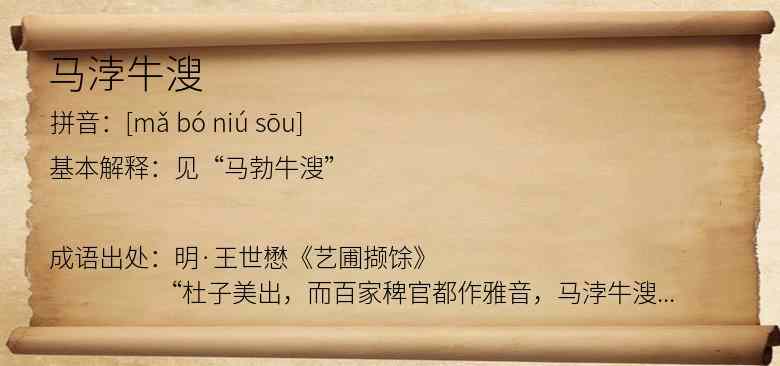 马浡牛溲
拼音：[mǎ bó niú sōu]
基本解释：见“马勃牛溲”
成语出处：明·王世懋《艺圃撷馀》
“杜子美出，而百家稗官都作雅音，马浡牛溲...